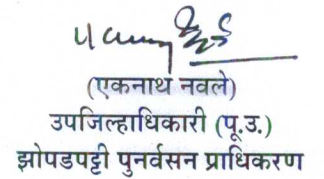 (एकनाथ नवले)
उपजिल्हाधिकारी (पू.उ.)
झोपडपट्टी पुनर्वसन प्राधिकरण